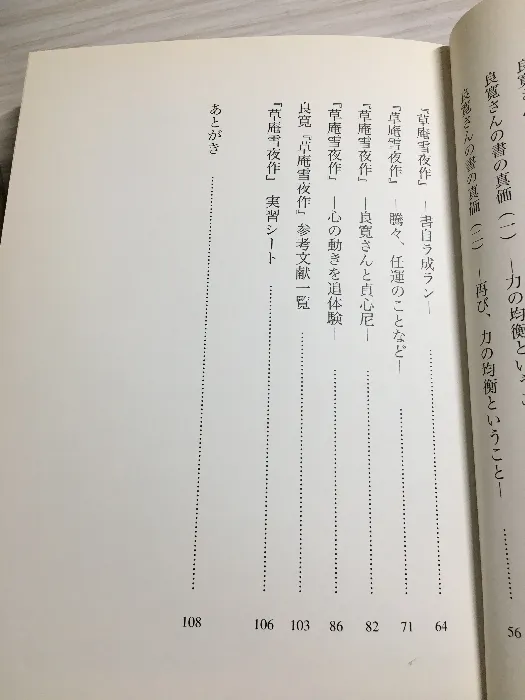 良寛さんの書の真価(一) ―力の均衡という
良寛さんの書の真価(二) ―再び、力の均衡ということ― …… 56
『草庵雪夜作』 ―書自ラ成ラン― …… 64
『草庵雪夜作』 ―騰々、任運のことなど― …… 71
『草庵雪夜作』 ―良寛さんと貞心尼― …… 82
『草庵雪夜作』 ―心の動きを追体験― …… 86
良寛『草庵雪夜作』参考文献一覧 …… 103
『草庵雪夜作』 実習シート …… 106
あとがき …… 108